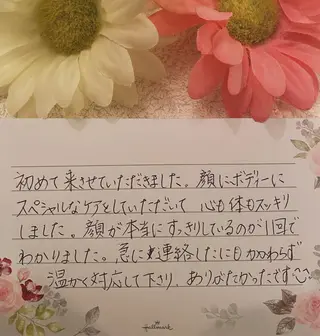 初めて来させていただきました。顔にボディーに
スペシャルなケアをしていただいて 心も体もスッキリ
しました。顔が本当にすっきりしているのが1回で
わかりました。急に連絡したにもかかわらず
温かく対応して下さり、ありがたかったです♡
Hallmark